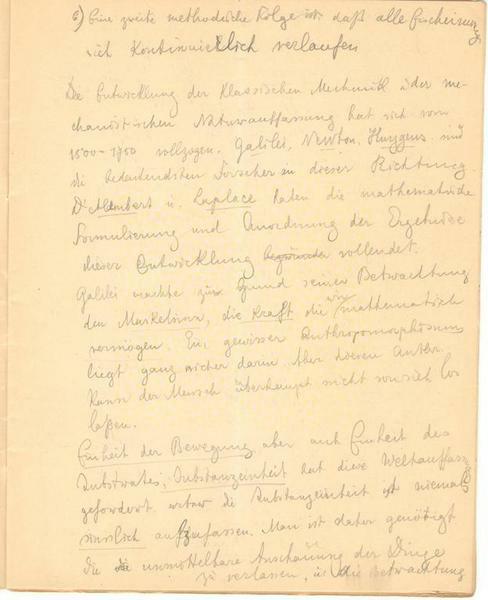 c) Eine zweite methodische Folge ist daß alle Erscheinungen
sich Kontinuierlich verlaufen
Die Entwicklung der Klassischen Mechanik oder me-
chanistischen Naturauffassung hat sich von
1500-1750 vollzogen. Galilei, Newton, Huygens sind
die bedeutendsten Forscher in dieser Richtung
D'Alembert u. Laplace haben die mathematische
Formulierung und Anordnung der Ergebnisse
dieser Entwicklung vollendet.
Galilei machte zum Grund seiner Betrachtung
den Muskelsinn, die Kraft die wir mathematisch
vermögen. Ein gewisser Anthropomorphismus
liegt ganz sicher darin. Aber diesen Anthr.
kann der Mensch überhaupt nicht von sich los
laßen.
Einheit der Bewegung aber auch Einheit des
Substrates, Substanzeinheit hat diese Weltauffassung
gefordert. die Substanzeinheit ist niemals
sinnlich aufzufassen. Man ist daher genötigt
die unmittelbare Anschauung der Dinge
zu verlassen, u. die Betrachtung